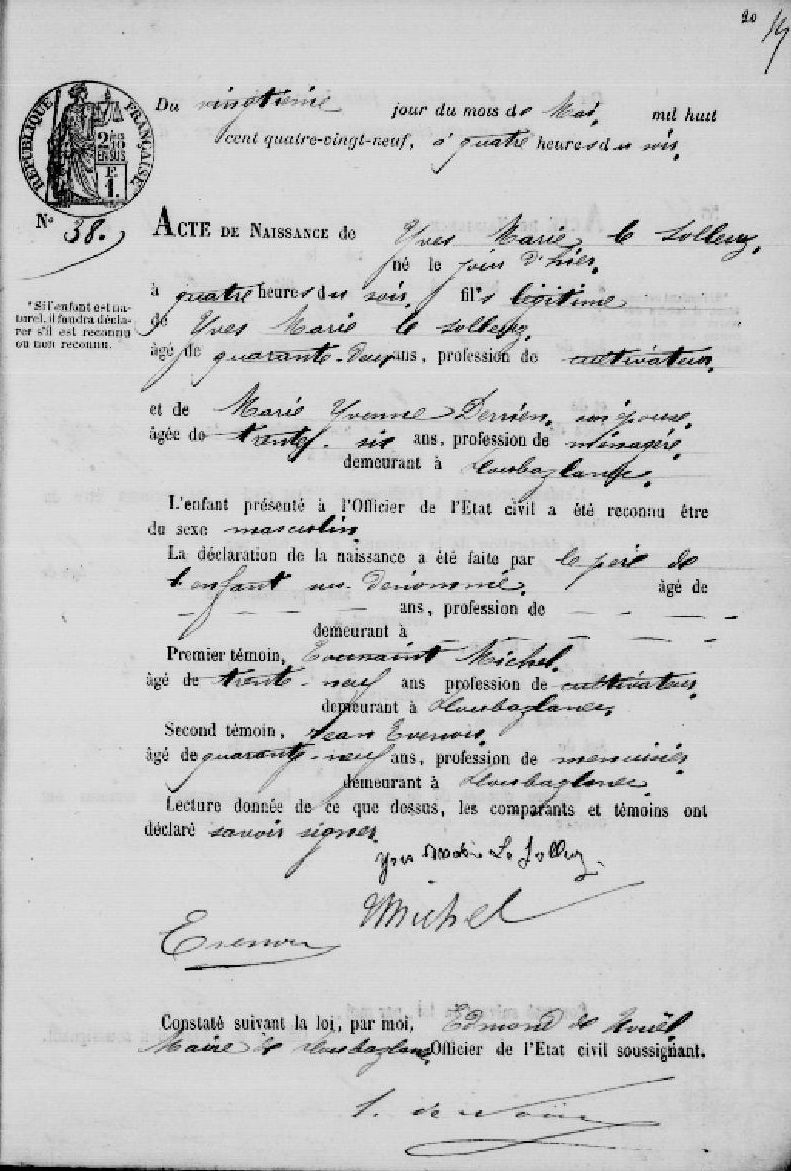 20
RÉPUBLIQUE FRANÇAISE
2/10es
EN SUS
F.
1.
Du vingtième jour du mois de Mai, mil huit
cent quatre-vingt-neuf, à quatre heures du soir.
N° 38.
ACTE DE NAISSANCE de Yves Marie le Solleuz,
né le jour d'hier,
à quatre heures du soir, fils légitime
* Si l'enfant est na-
turel, il faudra décla-
rer s'il est reconnu
ou non reconnu.
de Yves Marie le Solleuz,
âgé de quarante-deux ans, profession de cultivateur,
et de Marie Yvonne Derrien, son épouse,
âgée de trente-six ans, profession de ménagère,
demeurant à Loubazlanec.
L'enfant présenté à l'Officier de l'Etat civil a été reconnu être
du sexe masculin.
La déclaration de la naissance a été faite par le père de
l'enfant sus dénommé, âgé de
— — — — ans, profession de — — —
demeurant à — — — —
Premier témoin, Toussaint Michel,
âgé de trente-neuf ans profession de cultivateur,
demeurant à Ploubazlanec,
Second témoin, Jean Evenou,
âgé de quarante-neuf ans, profession de menuisier
demeurant à Ploubazlanec
Lecture donnée de ce que dessus, les comparants et témoins ont
déclaré savoir signer.
Yves Marie Le Solleuz
Michel
Evenou
Constaté suivant la loi, par moi, Edmond de Nouël,
Maire de Ploubazlanec Officier de l'Etat civil soussignant.